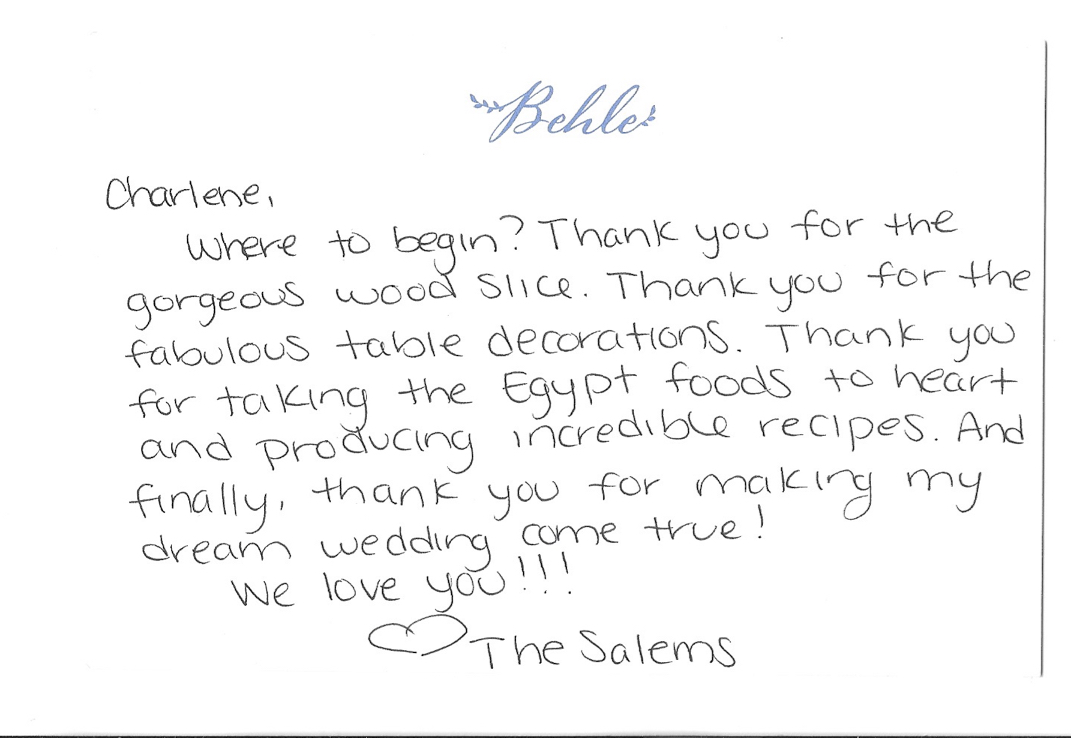 Behle
Charlene,
Where to begin? Thank you for the
gorgeous wood slice. Thank you for the
fabulous table decorations. Thank you
for taking the Egypt foods to heart
and producing incredible recipes. And
finally, thank you for making my
dream wedding come true!
We love you!!!
♡ The Salems